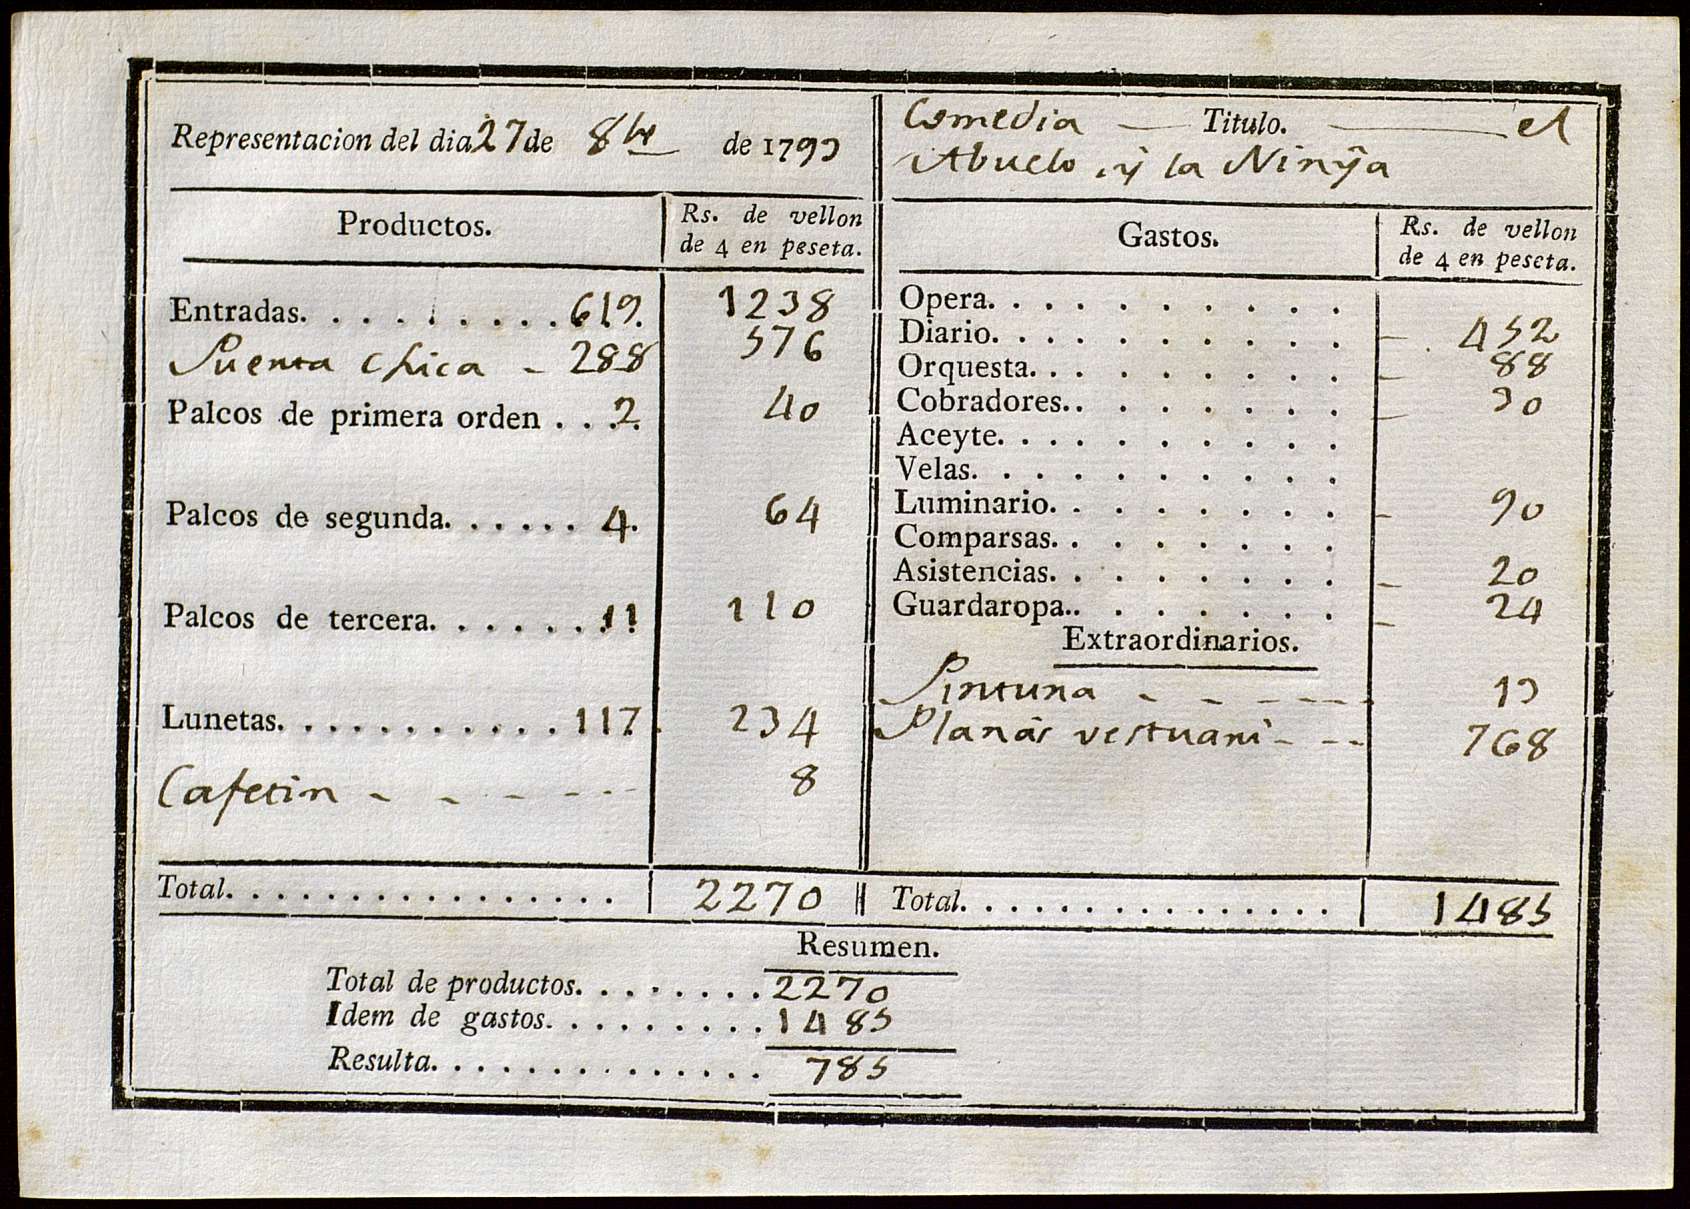 Representacion del dia 27 de 8bre de 1793
Comedia — Titulo. — el
Abuelo, ÿ la Ninÿa
Productos.
Rs. de vellon
de 4 en peseta.
Entradas. . . . . . . . . . 619. 1238
Puerta chica - 288 576
Palcos de primera orden . . . 2. 40
Palcos de segunda. . . . . . 4. 64
Palcos de tercera. . . . . . . 11 110
Lunetas. . . . . . . . . . . 117. 234
Cafetin - - - - - - 8
Total. . . . . . . . . . . . . . . . . 2270
Gastos.
Rs. de vellon
de 4 en peseta.
Opera. . . . . . . . . .
Diario. . . . . . . . . . - 452
Orquesta. . . . . . . . . - 88
Cobradores.. . . . . . . - 30
Aceyte. . . . . . . . . .
Velas. . . . . . . . . .
Luminario. . . . . . . . - 90
Comparsas. . . . . . . .
Asistencias. . . . . . . . - 20
Guardaropa.. . . . . . . - 24
Extraordinarios.
Pintura - - - - - - 13
Planàs vestuari - - - 768
Total. . . . . . . . . . . . . . . . 1485
Resumen.
Total de productos. . . . . . . . 2270
Idem de gastos. . . . . . . . . 1485
Resulta. . . . . . . . . . . . . . 785